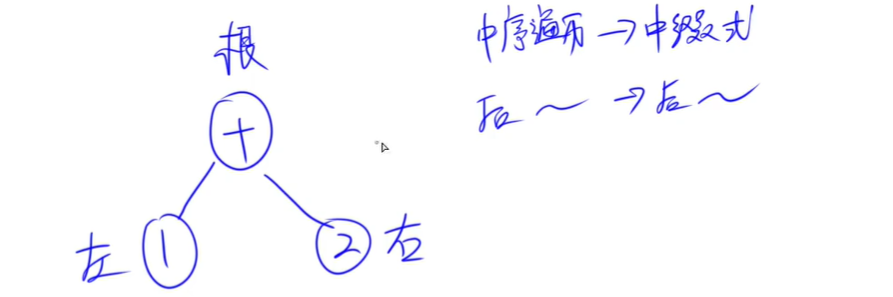 根
+
左 1 2 右
中序遍历→中缀式
后~→后~